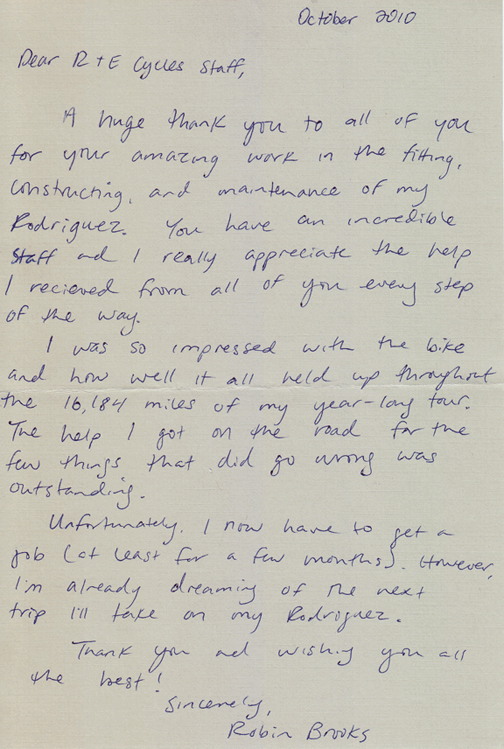 October 2010
Dear R+E Cycles Staff,
A huge thank you to all of you
for your amazing work in the fitting,
constructing, and maintenance of my
Rodriguez. You have an incredible
staff and I really appreciate the help
I recieved from all of you every step
of the way.
I was so impressed with the bike
and how well it all held up throughout
the 16,184 miles of my year-long tour.
The help I got on the road for the
few things that did go wrong was
outstanding.
Unfortunately, I now have to get a
job (at least for a few months). However,
I'm already dreaming of the next
trip I'll take on my Rodriguez.
Thank you and wishing you all
the best!
Sincerely,
Robin Brooks